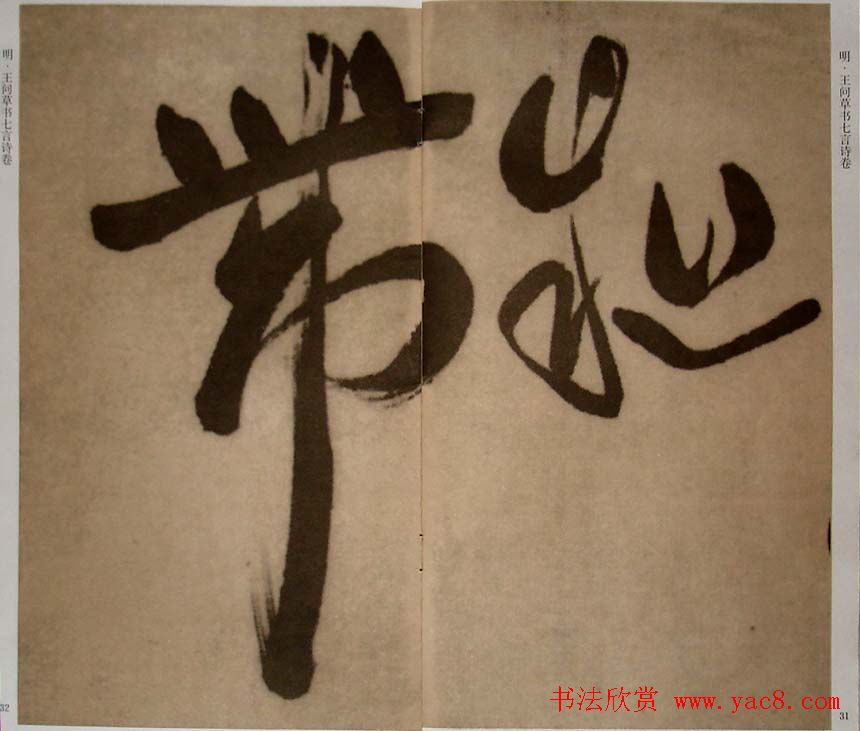 明·王问草书七言诗卷
帶
明·王问草书七言诗卷
31
32
书法欣赏 www.yac8.com